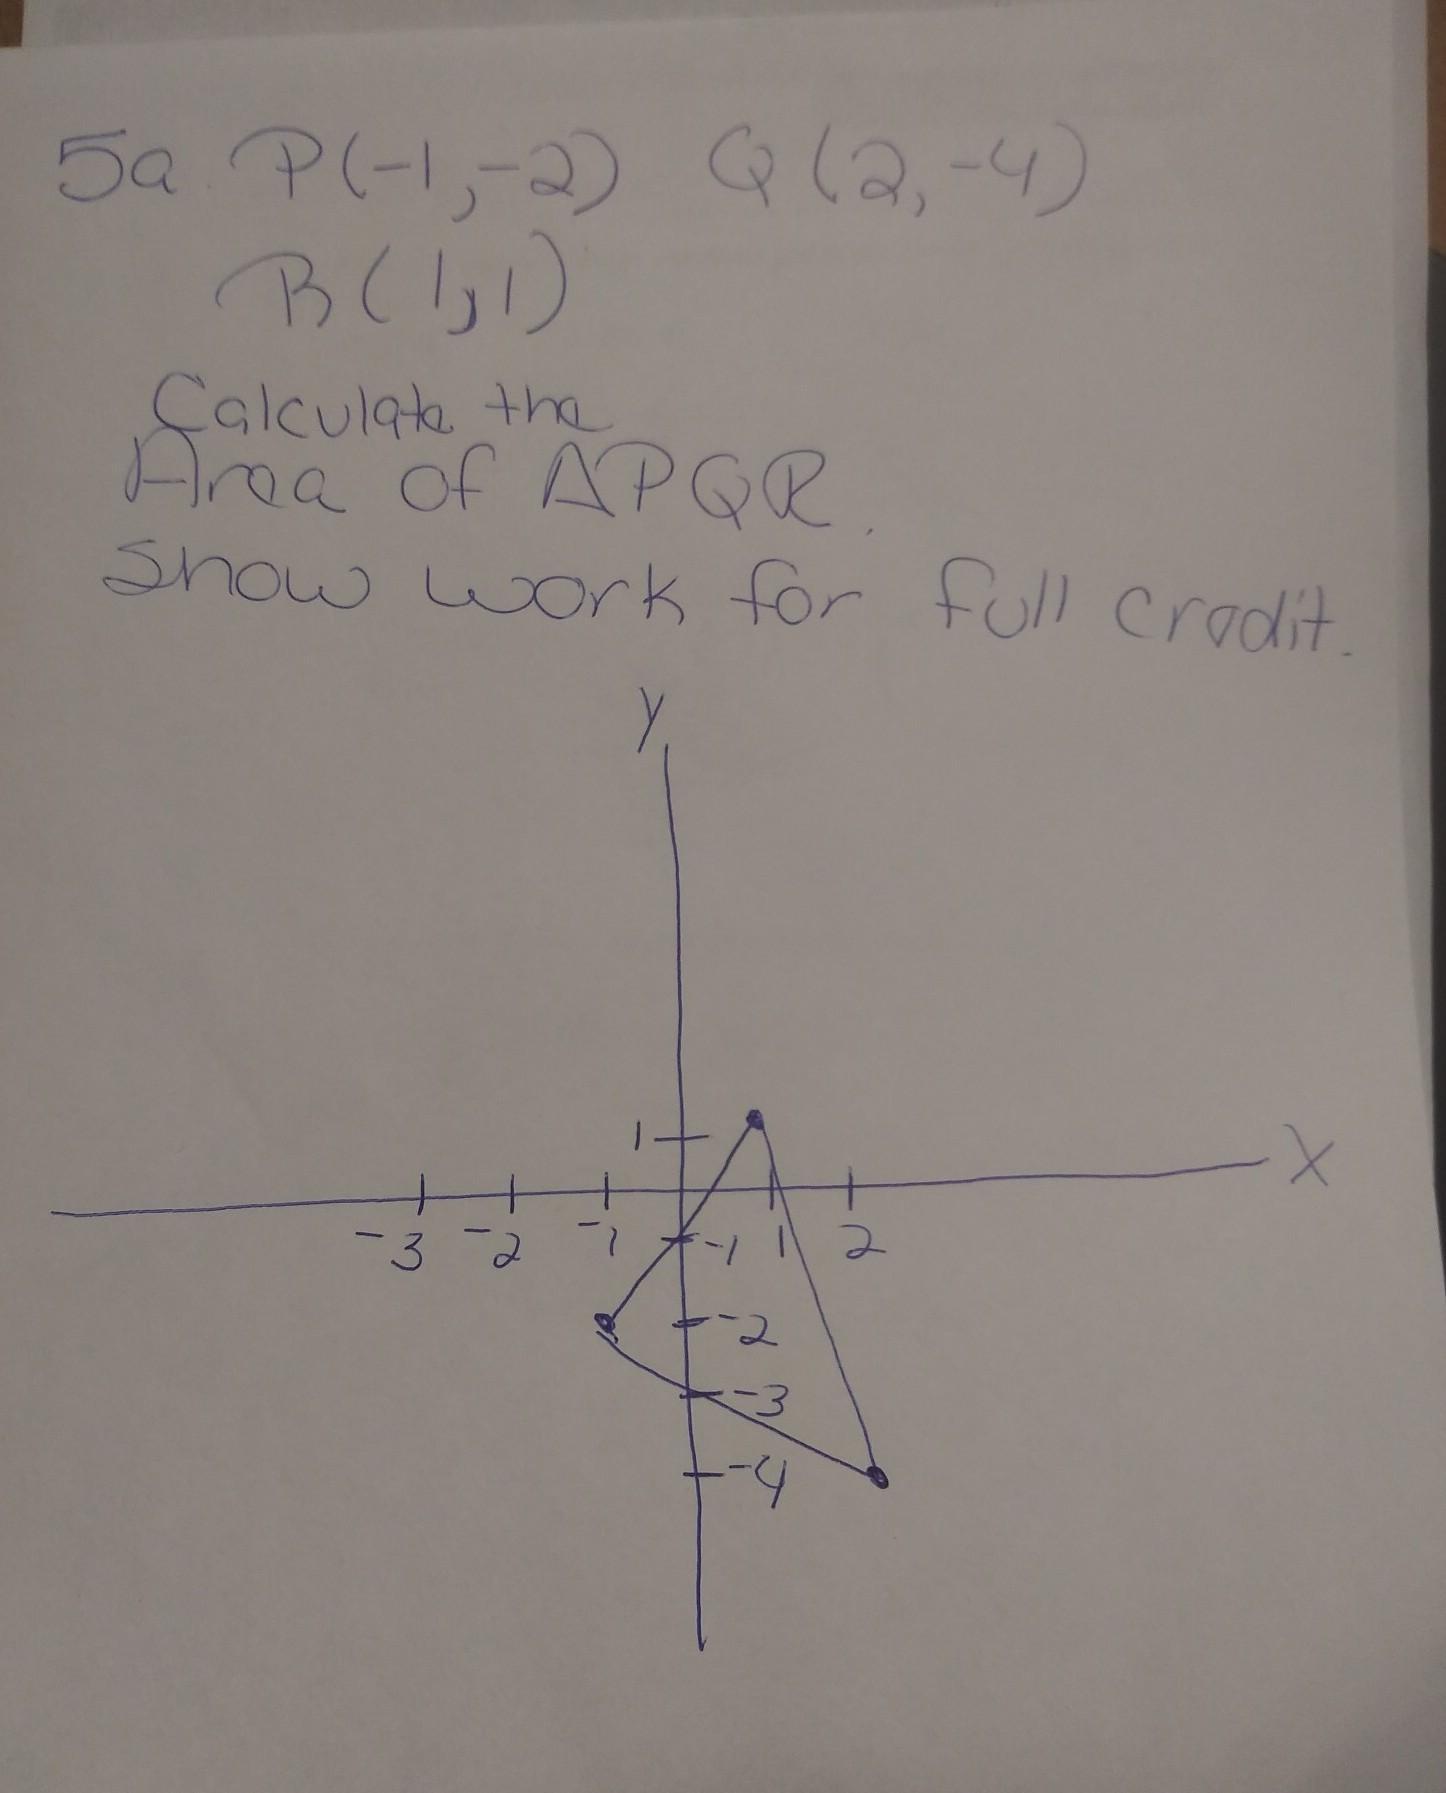 5a. P(-1,-2) Q(2,-4)
R(1,1)
Calculate the
Area of ΔPQR.
Show work for full credit.
y
1
X
-3 -2 -1 -1 1 2
-2
-3
-4